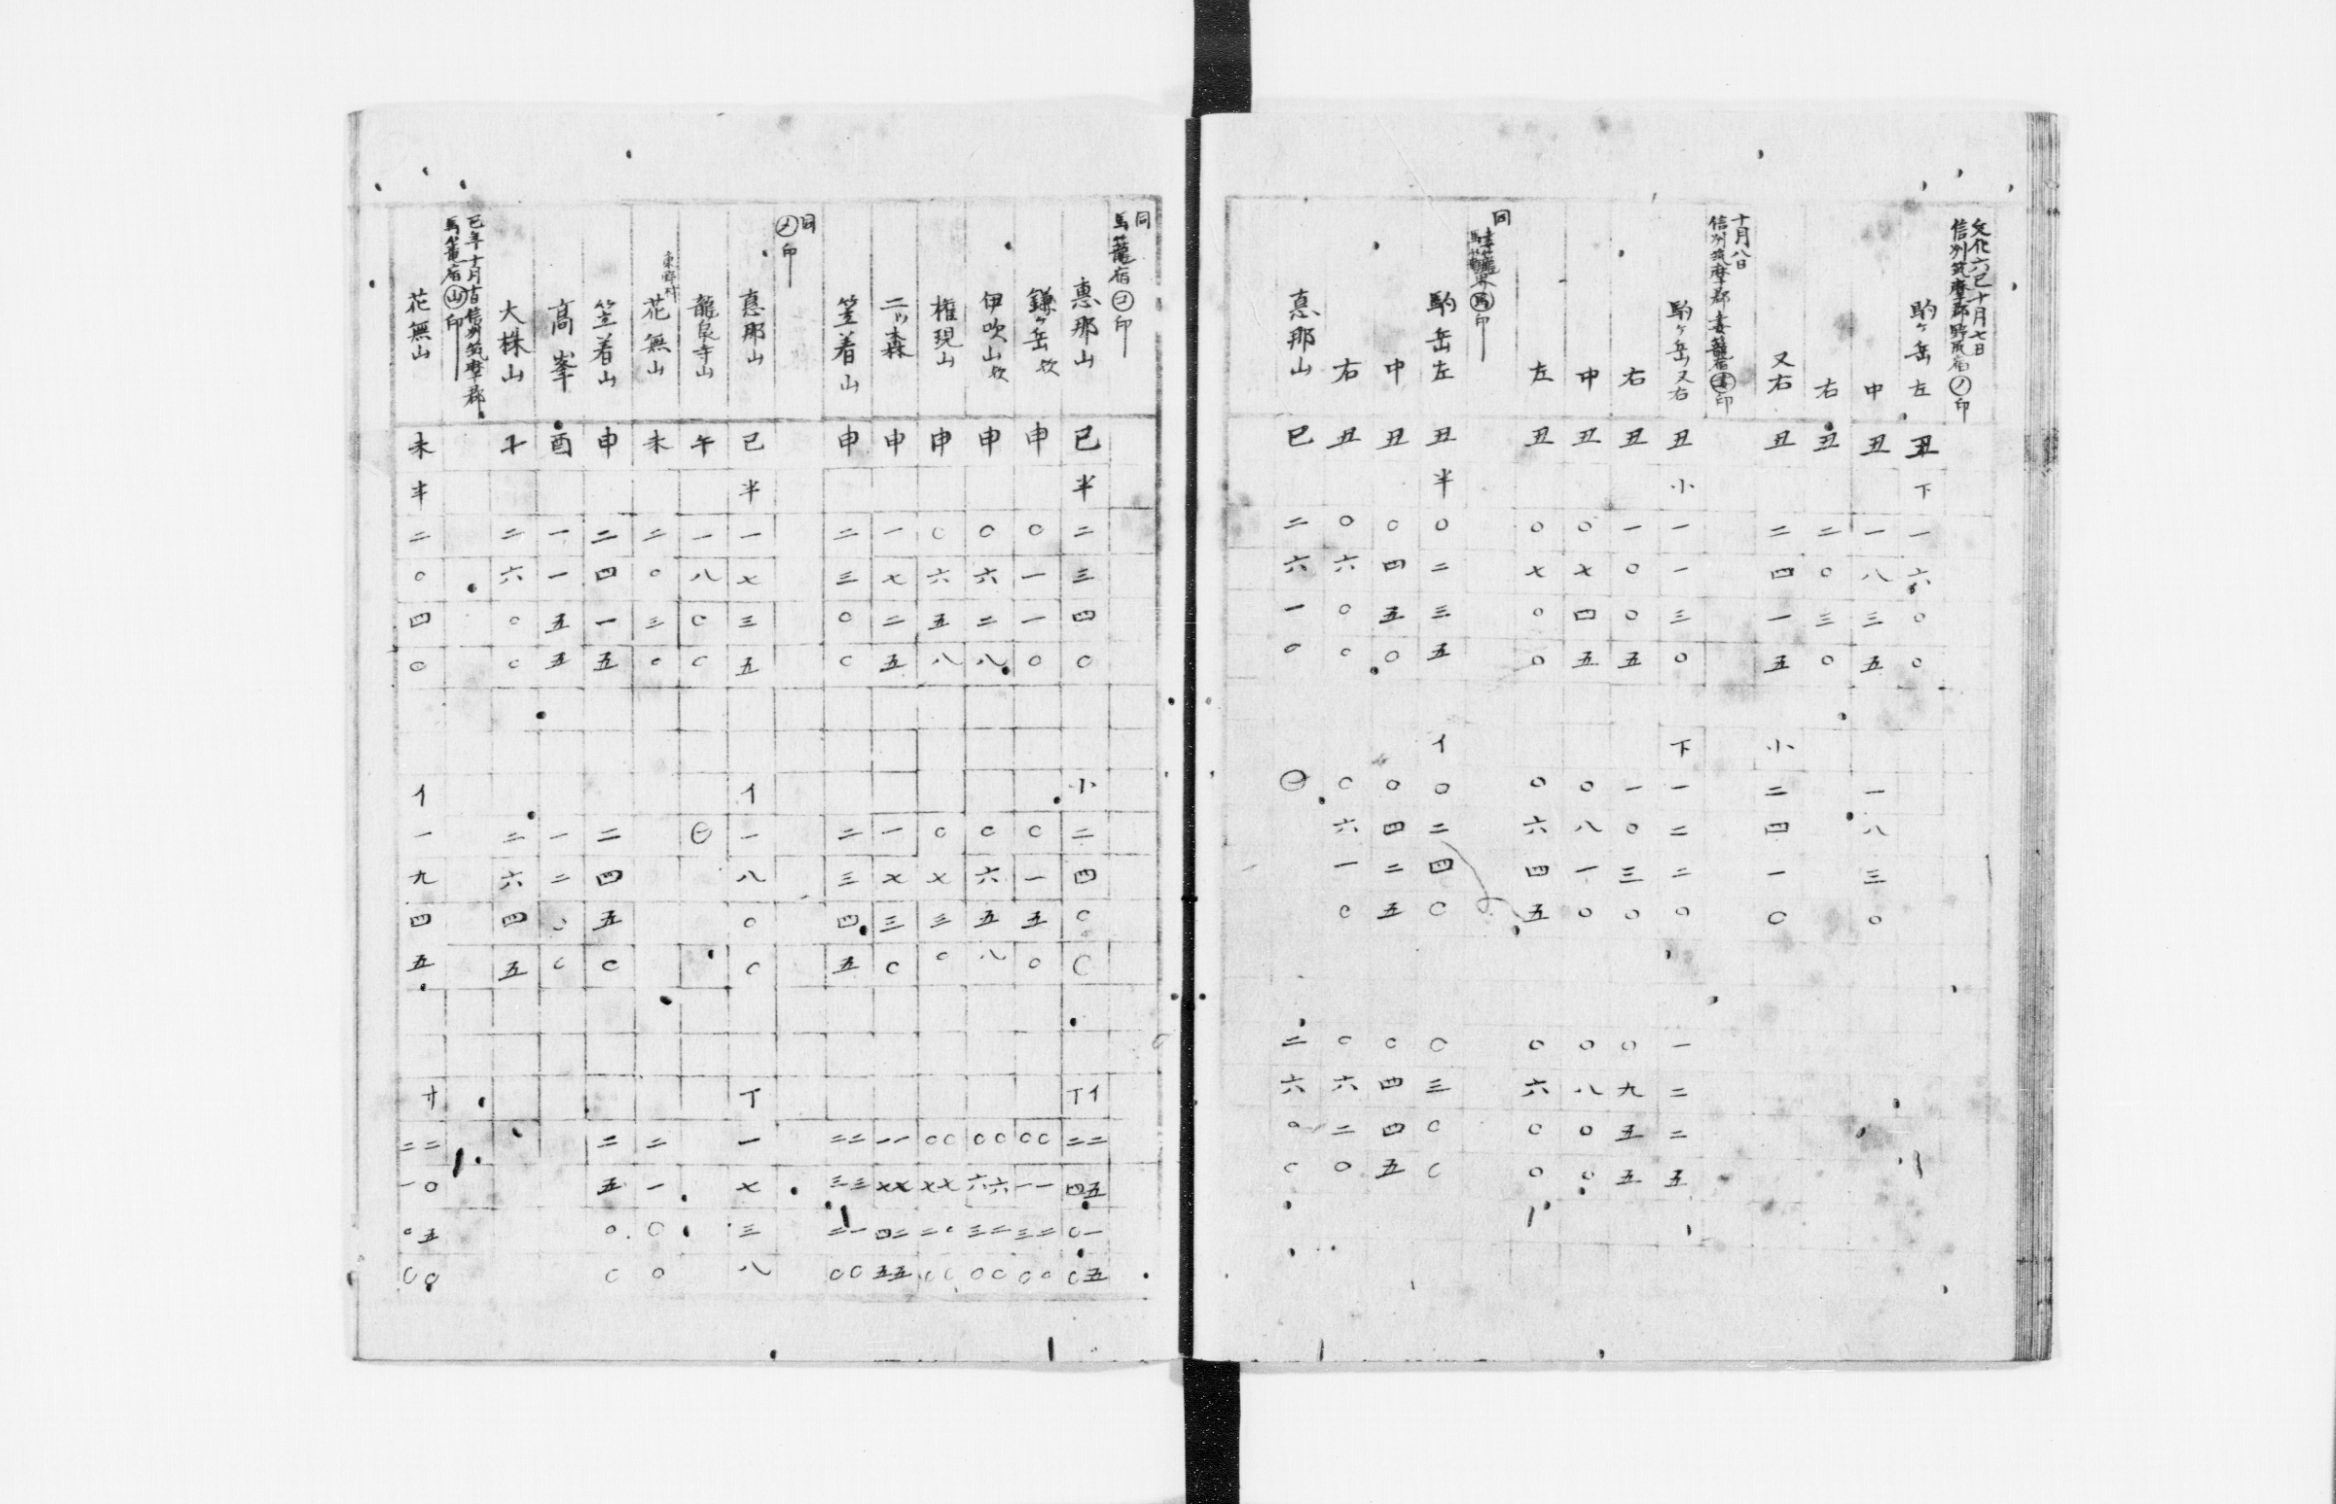 文化六巳十月七日
信州筑摩郡野尻宿㋨印
駒ヶ岳左 丑 下 一六〇〇
中 丑 一八三五 一八三〇
右 丑 二〇三〇
又右 丑 二四一五 小 二四一〇
十月八日
信州筑摩郡妻籠宿 印
駒ヶ岳又右 丑 小 一一三〇 下 一二二〇 一二二五
右 丑 一〇〇五 一〇三〇 〇九五五
中 丑 〇七四五 〇八一〇 〇八〇〇
左 丑 〇七〇〇 〇六四五 〇六〇〇
同
印
駒岳左 丑 半 〇二三五 イ 〇二四〇 〇三〇〇
中 丑 〇四五〇 〇四二五 〇四四五
右 丑 〇六〇〇 〇六一〇 〇六二〇
恵那山 巳 二六一〇 ㊀ 二六〇〇
同
馬籠宿㋙印
恵那山 巳 半 二三四〇 小 二四〇〇 イ 二五一五 丁 二四〇〇
鎌ヶ岳 申 〇一一〇 〇一五〇 〇一二〇 〇一三〇
伊吹山 申 〇六二八 〇六五八 〇六二〇 〇六三〇
権現山 申 〇六五八 〇七三〇 〇七〇〇 〇七二〇
二ツ森 申 一七二五 一七三〇 一七二五 一七四五
笠着山 申 二三〇〇 二三四五 二三一〇 二三二〇
同
㋱印
恵那山 巳 半 一七三五 イ 一八〇〇 丁 一七三八
龍泉寺山 午 一八〇〇 ㊀
東野村
花無山 未 二〇三〇 二一〇〇
笠着山 申 二四一五 二四五〇 二五〇〇
高峯 酉 一一五五 一二〇〇
大株山 子 二六〇〇 二六四五
馬籠宿㊤印
花無山 未 半 二〇四〇 イ 一九四五 サ 二〇五〇 二一〇〇